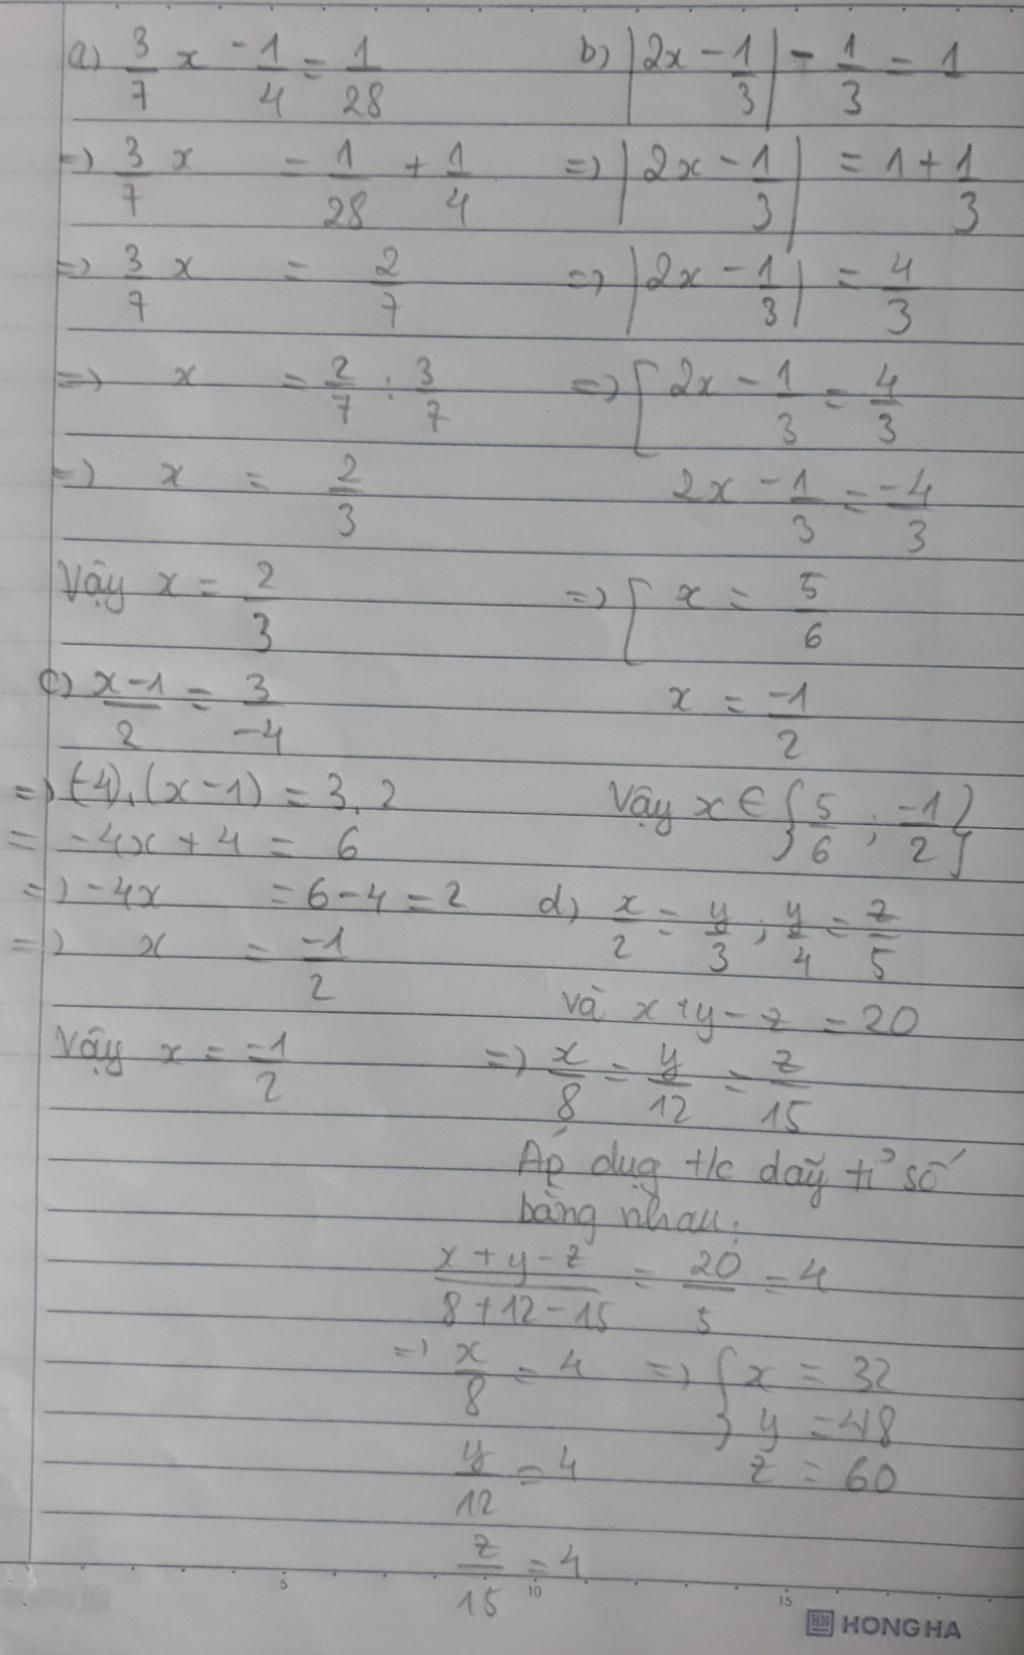 a) 3/7 x - 1/4 = 1/28
=) 3/7 x = 1/28 + 1/4
=) 3/7 x = 2/7
=) x = 2/7 : 3/7
=) x = 2/3
Vậy x = 2/3
b) |2x - 1/3| - 1/3 = 1
=) |2x - 1/3| = 1 + 1/3
=) |2x - 1/3| = 4/3
=) [ 2x - 1/3 = 4/3
2x - 1/3 = -4/3
=) [ x = 5/6
x = -1/2
Vậy x ∈ {5/6 ; -1/2}
c) x-1/2 = 3/-4
=) (-4).(x-1) = 3.2
= -4x + 4 = 6
=) -4x = 6-4 = 2
=) x = -1/2
Vậy x = -1/2
d) x/2 = y/3 ; y/4 = z/5
và x + y - z = 20
=) x/8 = y/12 = z/15
Áp dụg t/c dãy tỉ số
bằng nhau:
x + y - z / 8 + 12 - 15 = 20/5 = 4
=) x/8 = 4 =) { x = 32
y = 48
y/12 = 4 z = 60
z/15 = 4
5 10 15
HH HONG HA